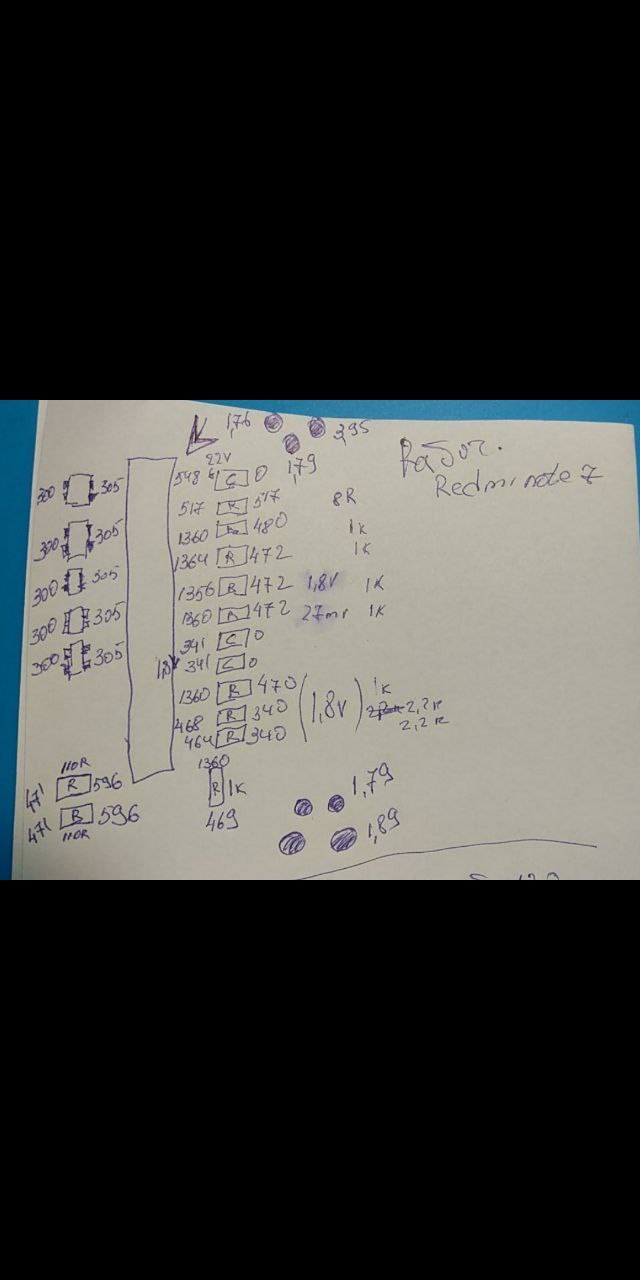 1,76 3,95
1,79
Рабоч.
Redmi note 7
22V
548 C 0
300 305
517 R 517 8R
1360 R 480 1K
300 305
1364 R 472 1K
300 305
1356 R 472 1,8V 1K
1360 R 472 27mv 1K
300 305
341 C 0
300 305
1,8V 341 C 0
1360 R 470 1K
468 R 340 (1,8V) 2,2K
464 R 340 2,2K
110R
471 R 596
1360
R 1K
469
1,79
471 R 596
110R
1,89